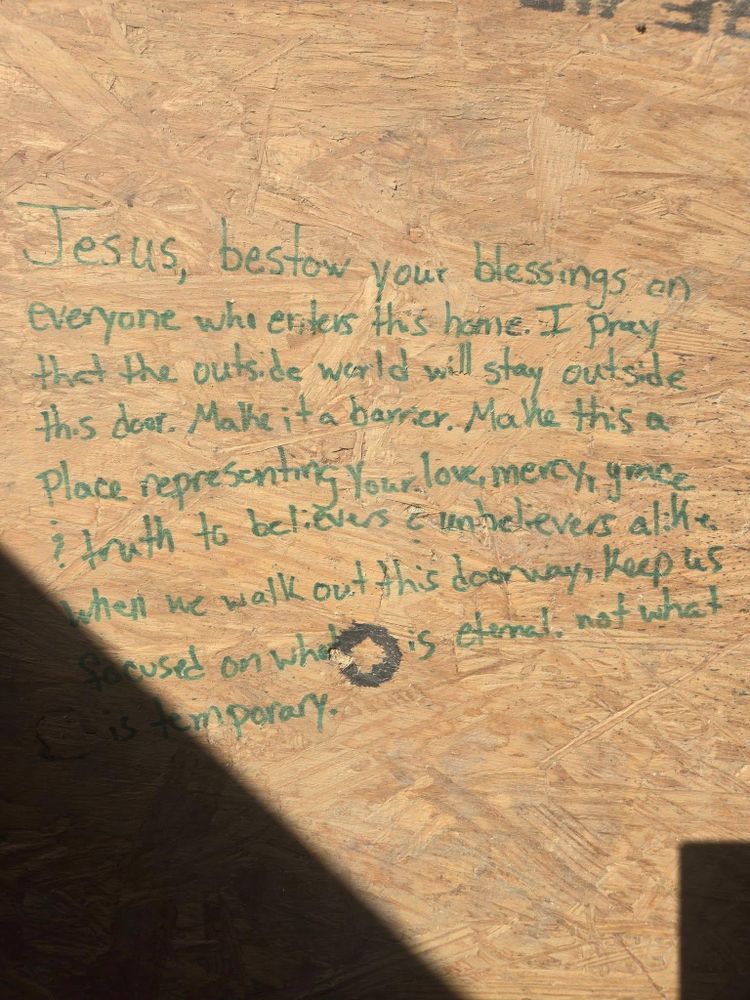 Jesus, bestow your blessings on
everyone who enters this home. I pray
that the outside world will stay outside
this door. Make it a barrier. Make this a
place representing your love, mercy, grace
& truth to believers & unbelievers alike.
when we walk out this doorway, keep us
focused on what is eternal. not what
is temporary.